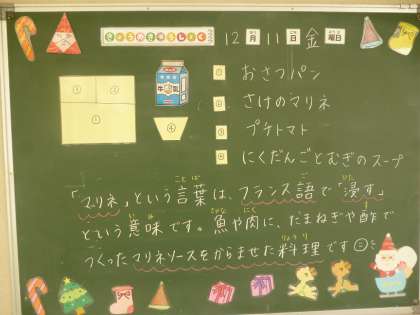 きょうのきゅうしょく
12月11日金曜日
① おさつパン
② さけのマリネ
③ プチトマト
④ にくだんごとむぎのスープ
① ② ③ ④
牛乳
「マリネ」という言葉は、フランス語で「浸す」
という意味です。魚や肉に、たまねぎや酢で
つくったマリネソースをからませた料理です